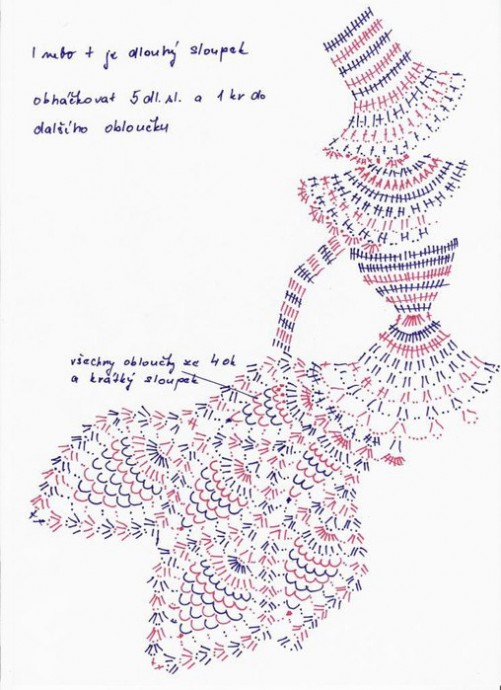 I nebo † je dlouhý sloupek
obháčkovat 5 dl. sl. a 1 kr do
dalšího obloučku
všechny obloučky ze 4 ok
a krátký sloupek